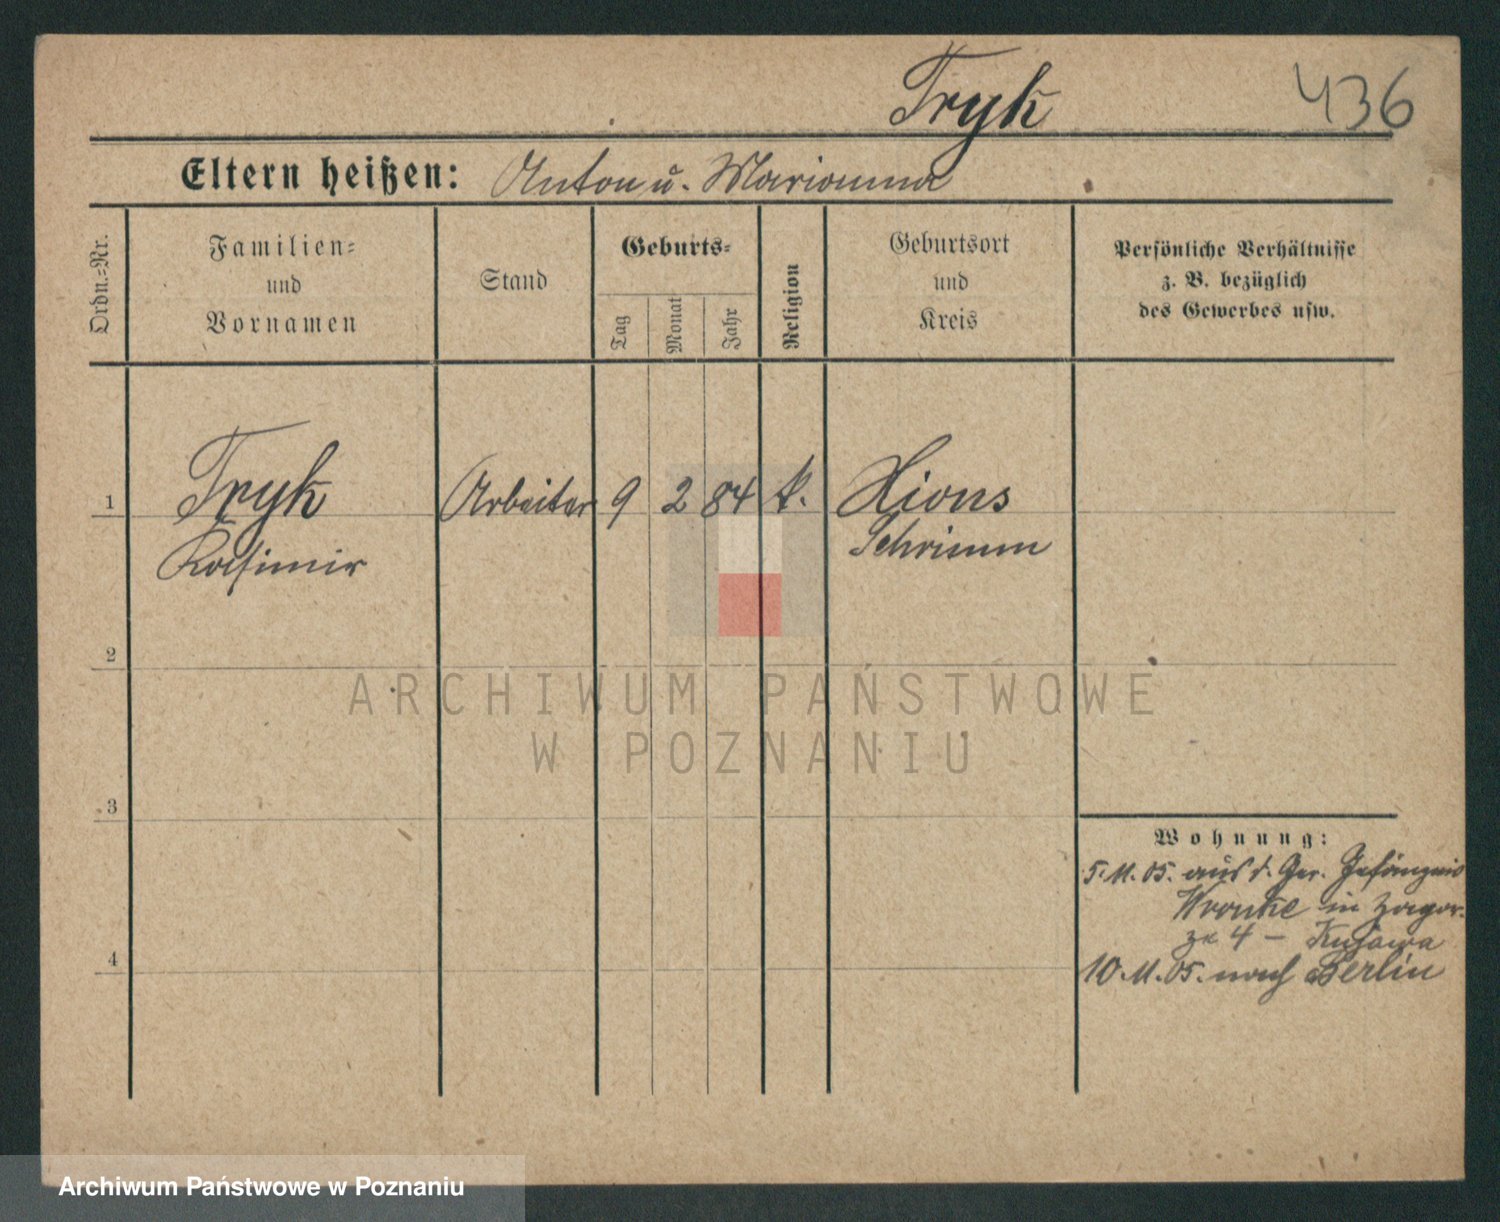 Tryk
436
Eltern heißen: Anton u. Marianna
Ordn.-Nr.
Familien-
und
Vornamen
Stand
Geburts-
Tag
Monat
Jahr
Religion
Geburtsort
und
Kreis
Persönliche Verhältnisse
z. B. bezüglich
des Gewerbes usw.
1
Tryk
Kasimir
Arbeiter
9
2
84
k.
Xions
Schrimm
2
ARCHIWUM PAŃSTWOWE
W POZNANIU
3
Wohnung:
5.11.05. aus d. Ger. Gefängnis
Wronke in Zagor-
ze 4 - Kujawa
10.11.05. nach Berlin
4
Archiwum Państwowe w Poznaniu